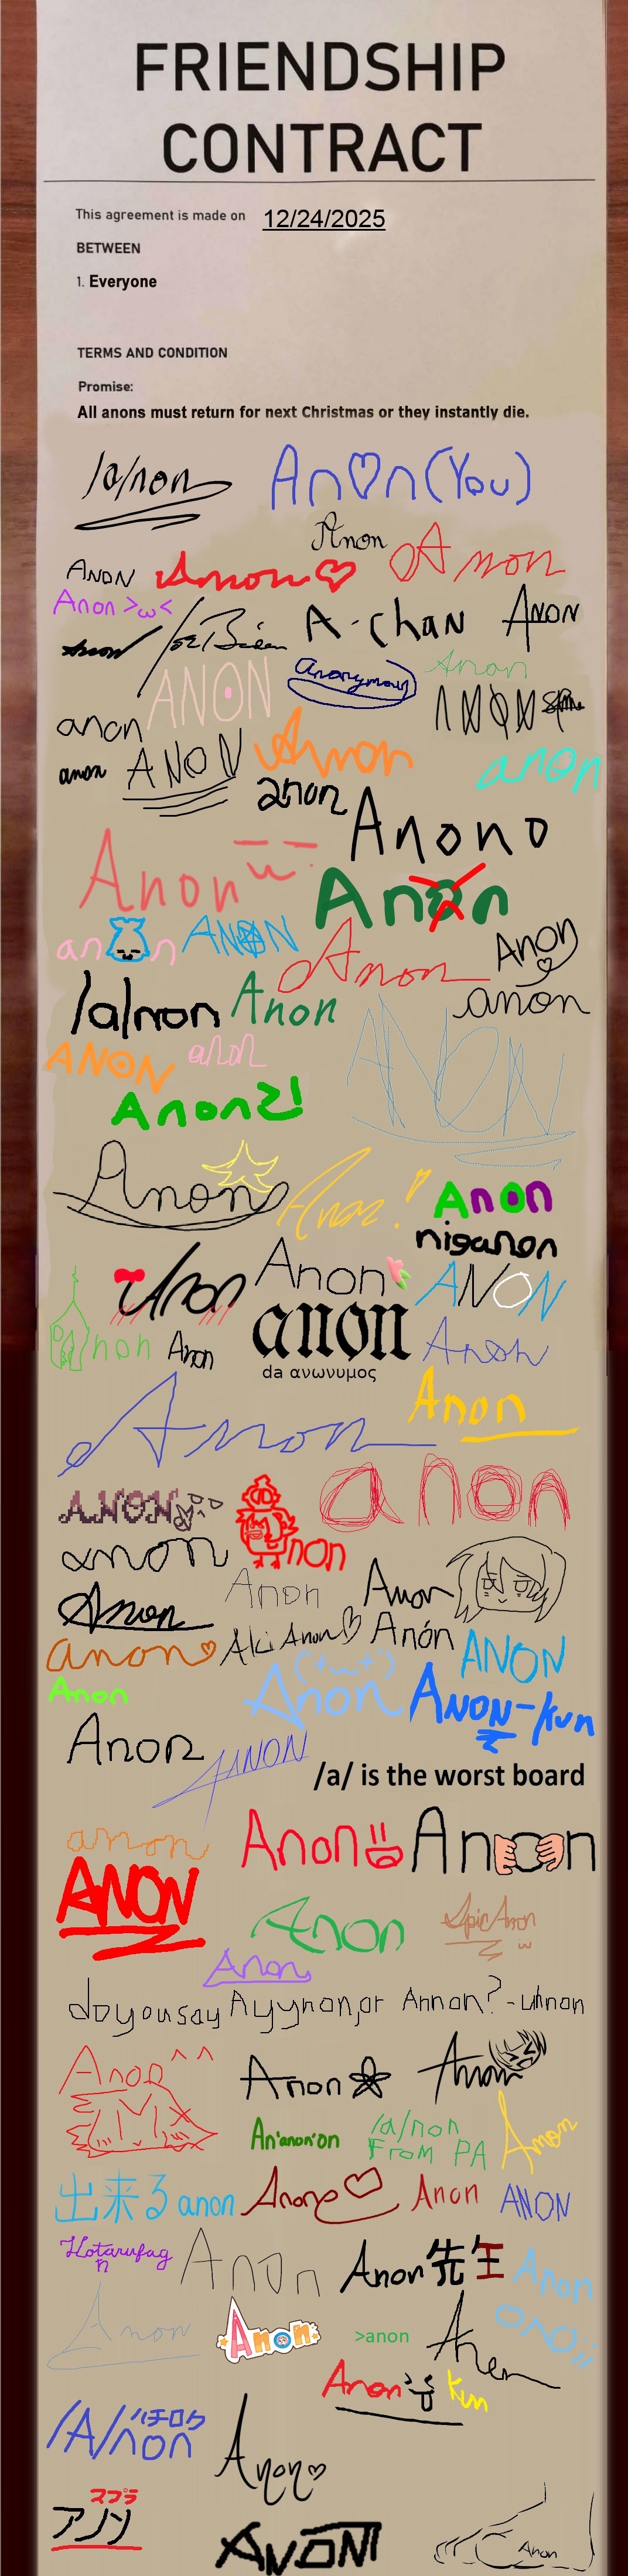 FRIENDSHIP
CONTRACT
This agreement is made on 12/24/2025
BETWEEN
1. Everyone
TERMS AND CONDITION
Promise:
All anons must return for next Christmas or they instantly die.
/a/non
An♡n (You)
Anon
Anon
ANON
Anon♡
Anon >ω<
Joe Biden
A-chan
ANON
Anon
ANON
anonymous
Anon
anon
ANON
anon
ANON
Anon
anon
anon
Anono
Anon
Anon
anon
ANON
Anon
Anon
/a/non
Anon
anon
ANON
anon
ANON
Anon2!
Anon
Anon!
Anon
niganon
Anon
Anon
ANON
anon
Anon
anon
da ανωνυμος
Anon
Anon
Anon
ANON
anon
non
anon
Anon
Anon
Anon
anon♡
Aki Anon♡
Anón
ANON
Anon
Anon
ANON-kun
Anon
ANON
/a/ is the worst board
anon
Anon
Anon
ANON
Anon
Epic Anon
Anon
do you say Ayynon, or Annon? - uhnon
Anon ^^
Anon
Anon
An'anon'on
/a/non
From PA
Anon
出来る anon
Anon♡
Anon
ANON
Hotarufag
Anon
Anon先生
Anon
Anon
Anon
>anon
Anon
Anon
kun
/A/non
ハチロク
Anon♡
スプラ
アノン
ANON
Anon